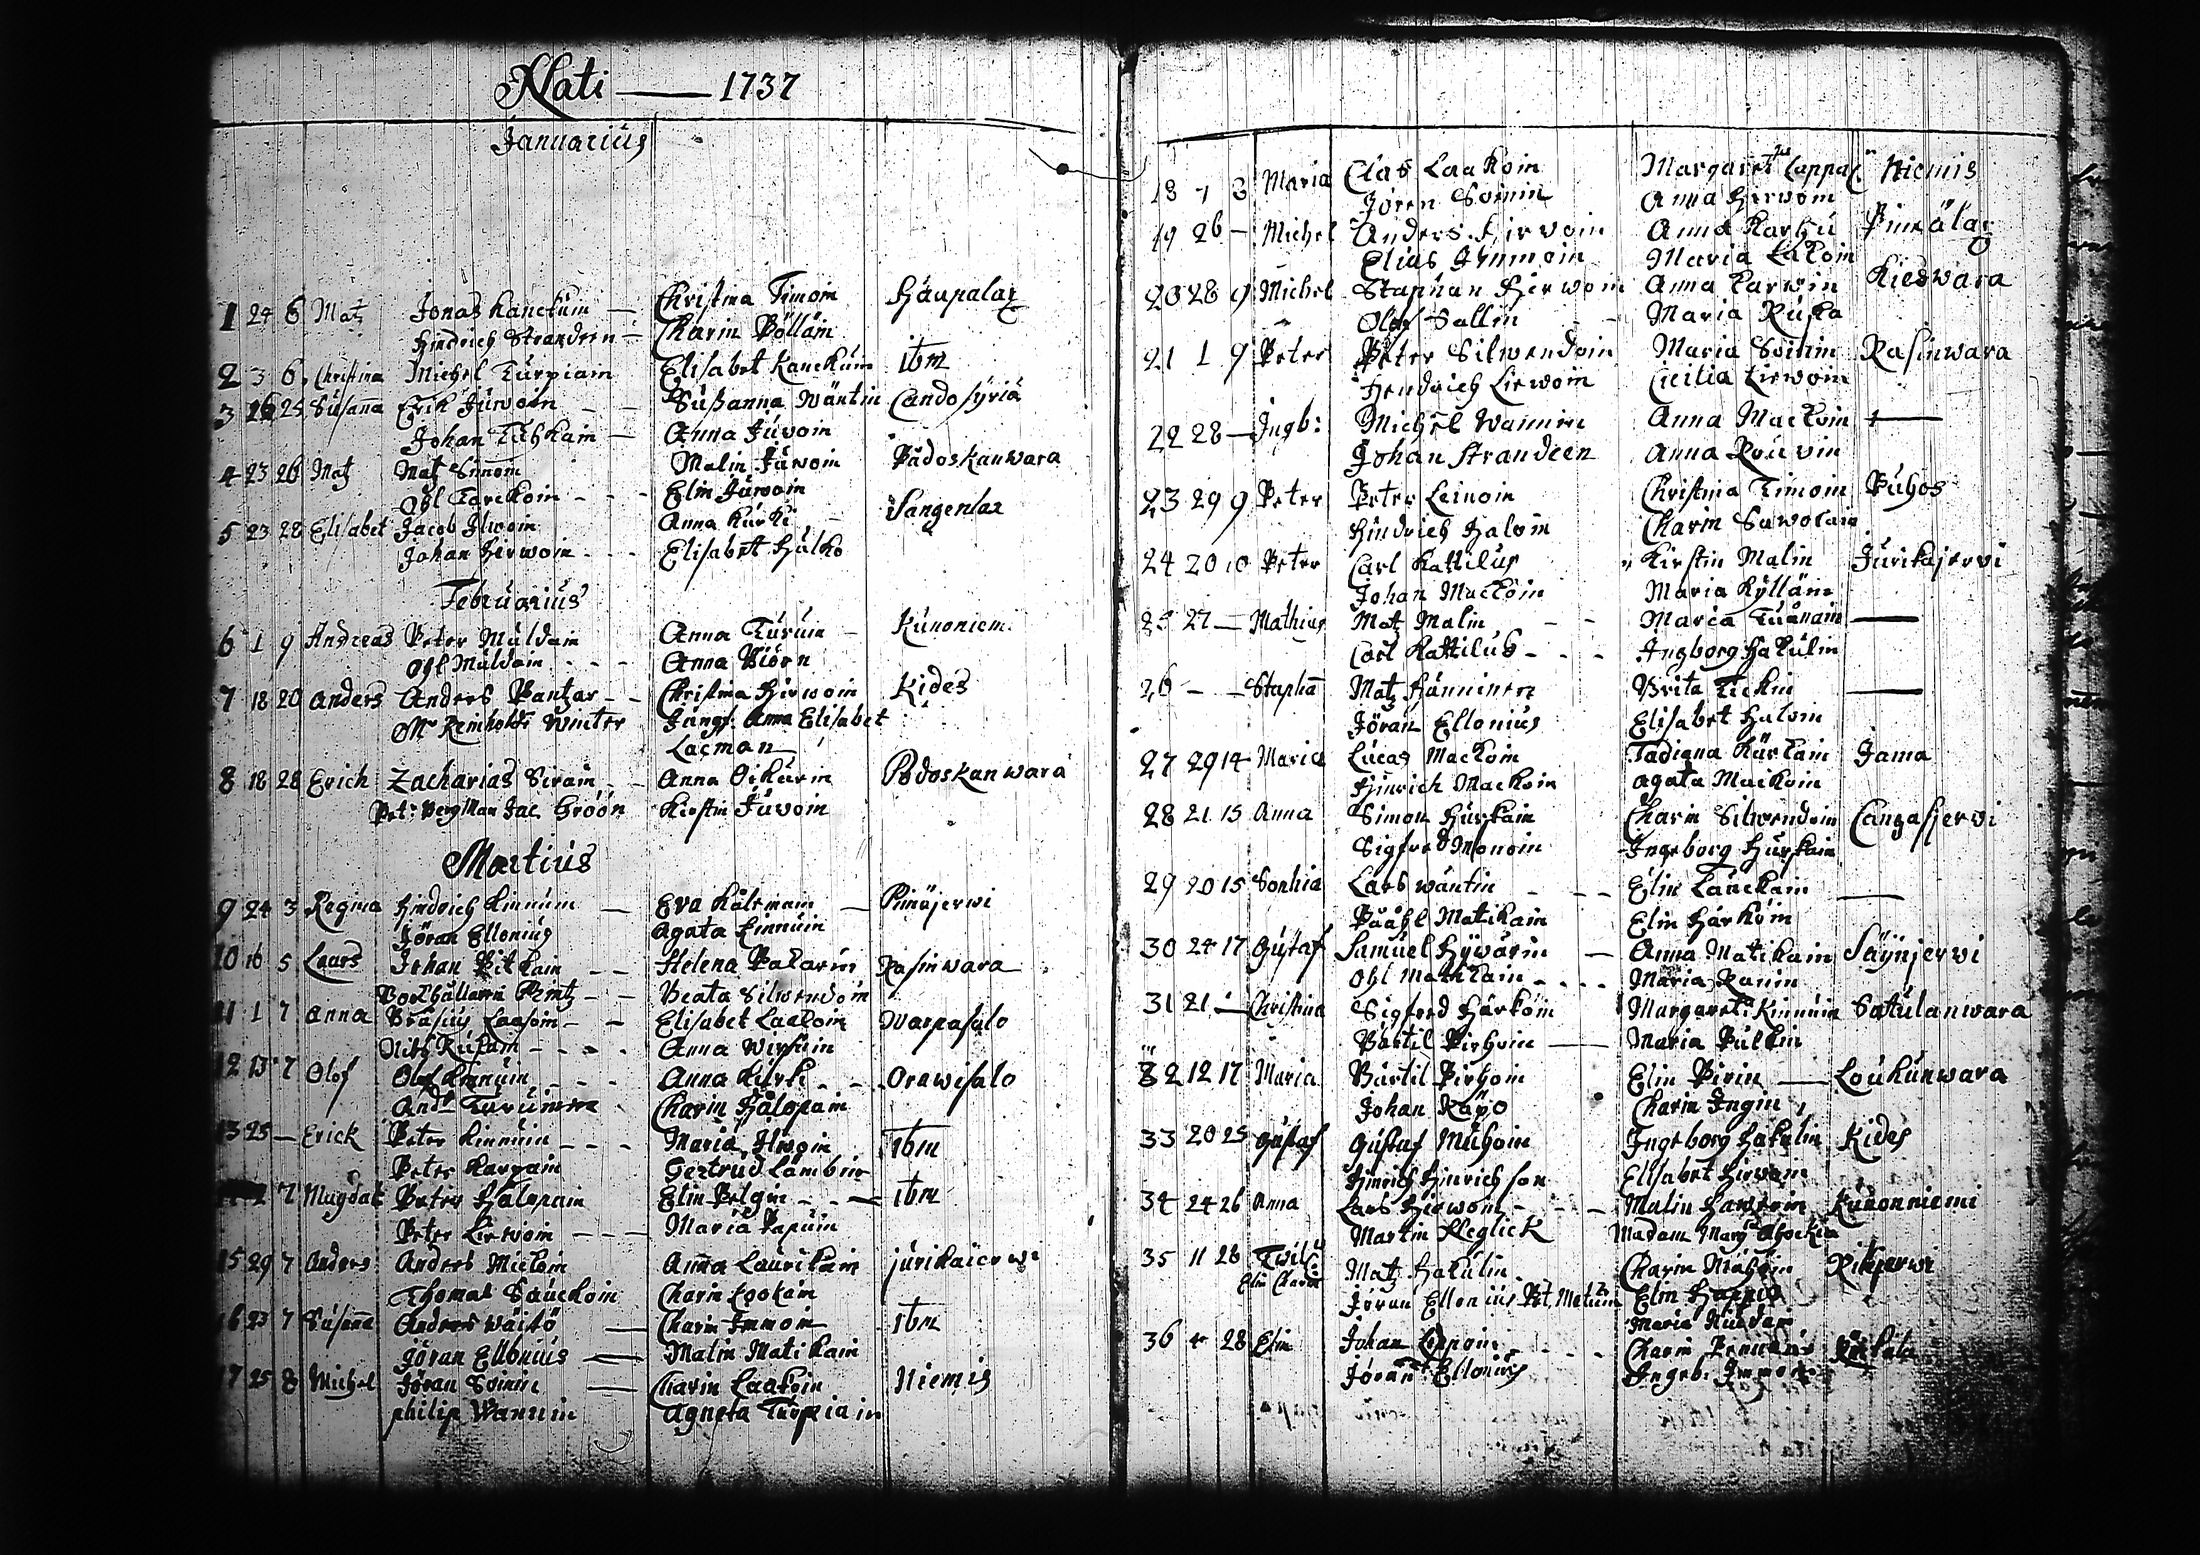 Nati — 1737
Januarius
1 24 6 Matz Jonas Kanckuin — Christina Timoin Häupalax
Hindrich Strandeen — Charin Pölläin
2 3 6 Christina Michel Turpiain Elisabet Kanckuin ibm
3 25 Susanna Erik Juwoin - - Sußanna Wäntin Candosyriä
Johan Tuhkain — Anna Juvoin
4 23 26 Matz Matz Sinnoin Malin Juwoin Pådoskanwara
Ohl Torckoin - - - Elin Juwoin
5 23 28 Elisabet Jacob Ilwoin Anna Kurki Sangenlax
Johan Hirwoin - - - Elisabet Hulko
Februarius
6 1 9 Andreas Peter Muldain Anna Turuin - Kunoniem:
Ohl Muldain - - - Anna Biörn
7 18 20 Anders Anders Pantzar - - Christina Hirwoin Kides
Mr Reinholdt Winter Jungf. Anna Elisabet
Lacman
8 18 28 Erich Zacharias Sirain - - Anna Oikarin Podoskanwara
Pet: Bergman Jac Gröön Kirstin Juvoin
Martius
9 24 3 Regina Hindrich Kinnuin — Eva Håkmain — Piinäjerwi
Jöran Ellonius Agata Kinnuin
10 16 5 Laurs Johan Pitkain - - Helena Pakarin Rasinwara
Printz - - Beata Silwendoin
11 1 7 Anna Bräsius Laasoin - - Elisabet Laakoin Warpasalo
- - - Anna
12 13 7 Olof Olof Kinnuin - - - Anna Kurki - - - Orawisalo
And: Turuinen Charin Halopain
13 25 — Erick Peter Kinnuin - - - Maria Ilwoin ibm
Peter Karpain Gertrud Lambin
7 Magdal Peter Halopain Elin Pelgin - - — ibm
Peter Lirwoin - - - Maria Papuin
15 29 7 Anders Anders Mickoin Anna Laurikain jurikaierwi
Thomas Sauckoin Charin Lookain
16 23 7 Susanna Anders Wäisö — Charin Immoin ibm
Jöran Ellonius — Malin Matikain
17 25 8 Michel Jöran Soinin — Charin Laakoin Niemis
philip Wannin Agneta Turpiain
18 7 8 Maria Clas Laakoin Margaret Lappal Niemis
Jören Soinin Anna Hirwoin
19 26 — Michel Anders Hirvoin Anna Karhu Pimälax
Elias Immoin Maria Lakoin
20 28 9 Michel Staphan Hirwoin Anna Karwin Kieswara
Olof Sallin - - Maria Ruska
21 1 9 Peter Peter Silwendoin Maria Soinin Rasinwara
Hendrich Lirwoin Cicilia Lirwoin
22 28 — Ingb: Michel Wannin Anna Mackoin —
Johan Strandeen Anna Rouvin
23 29 9 Peter Peter Leinoin Christina Timoin Puhos
Hindrich Haloin Charin Sawolain
24 20 10 Peter Carl Kattilus Kirstin Malin Jurikajervi
Johan Mackoin Maria Kylläin
25 27 — Mathias Matz Malin - - Maria Turanain —
Carl Kattilus - - - Ingborg Hakulin
26 — — Staphan Matz Hänninen Brita Tickin —
Jöran Ellonius Elisabet Haloin
27 29 14 Maria Lucas Mackoin Tadiana Kurkain Jama
Hinrich Mackoin Agata Mackoin
28 21 15 Anna Simon Hurskain Charin Silwendoin Cangasjervi
Sigfred Monoin Ingeborg Hurskain
29 20 15 Sophia Lars Wäntin - - - Elin Lauckain —
Pååhl Matikain Elin Härköin
30 24 17 Gustaf Samuel Hywärin — Anna Matikain Säynjervi
Ohl Matikain - - - - Maria Ranin
31 21 — Christina Sigfred Härköin Margareta Kinnuin Satulanwara
Bärtil Pirhoin — Maria Pulkin
32 12 17 Maria Bärtil Pirhoin Elin Pirin — Loukunwara
Johan Räpo Charin Ingin
33 20 25 Gustaf Gustaf Muhoin Ingeborg Hakulin Kides
Hinrich Hinrichson Elisabet Hirwoin
34 24 26 Anna Lars Hirwoin - - - Malin Kunonniemi
Martin Kleglick Madam Mary
35 11 28 Twil: Matz Hakulin Charin Muhoin
Elin Charin Jöran Ellonius Pet. Elin
Maria Muldain
36 4 28 Elin Johan - - - Charin
Jöran Ellonius Ingeb: Immoin